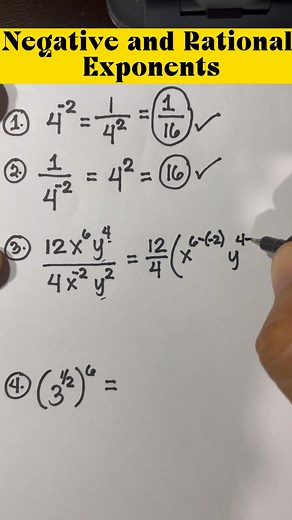 Negative and Rational
Exponents
1. 4^-2 = 1/4^2 = 1/16 ✓
2. 1/4^-2 = 4^2 = 16 ✓
3. 12x^6y^4/4x^-2y^2 = 12/4 (x^6-(-2) y^4-
4. (3^1/2)^6 =